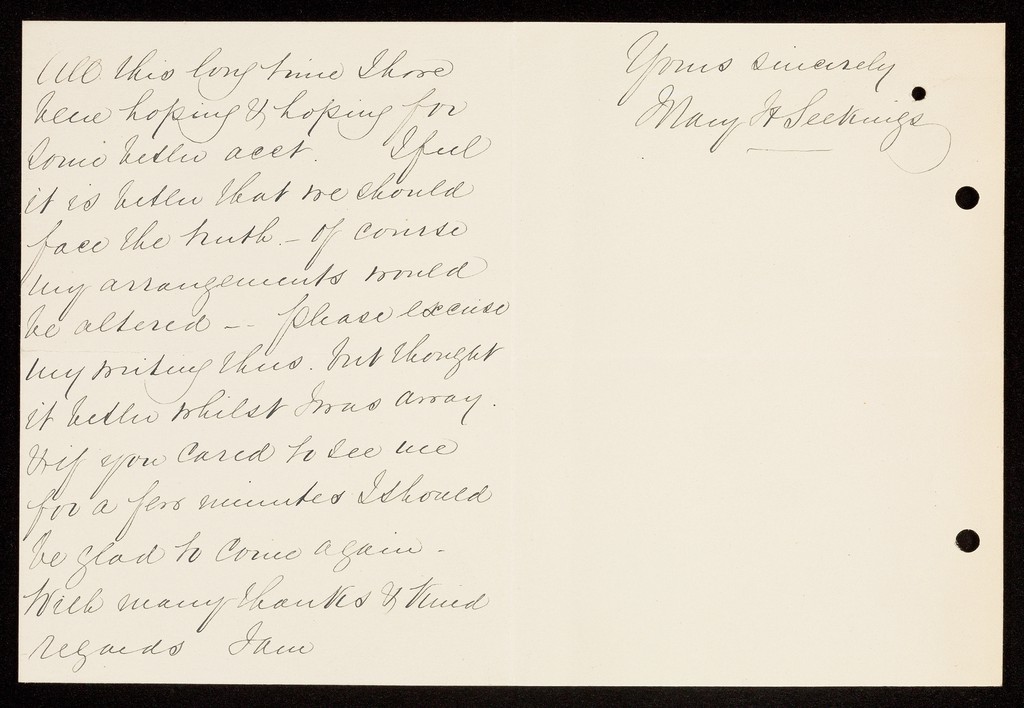 All this long time I have
been hoping & hoping for
some better acct. I feel
it is better that we should
face the truth. – Of course
my arrangements would
be altered – – please excuse
my writing thus. but thought
it better whilst I was away.
& if you cared to see me
for a few minutes I should
be glad to come again –
With many thanks & kind
regards I am
Yours sincerely
Mary H Seekings